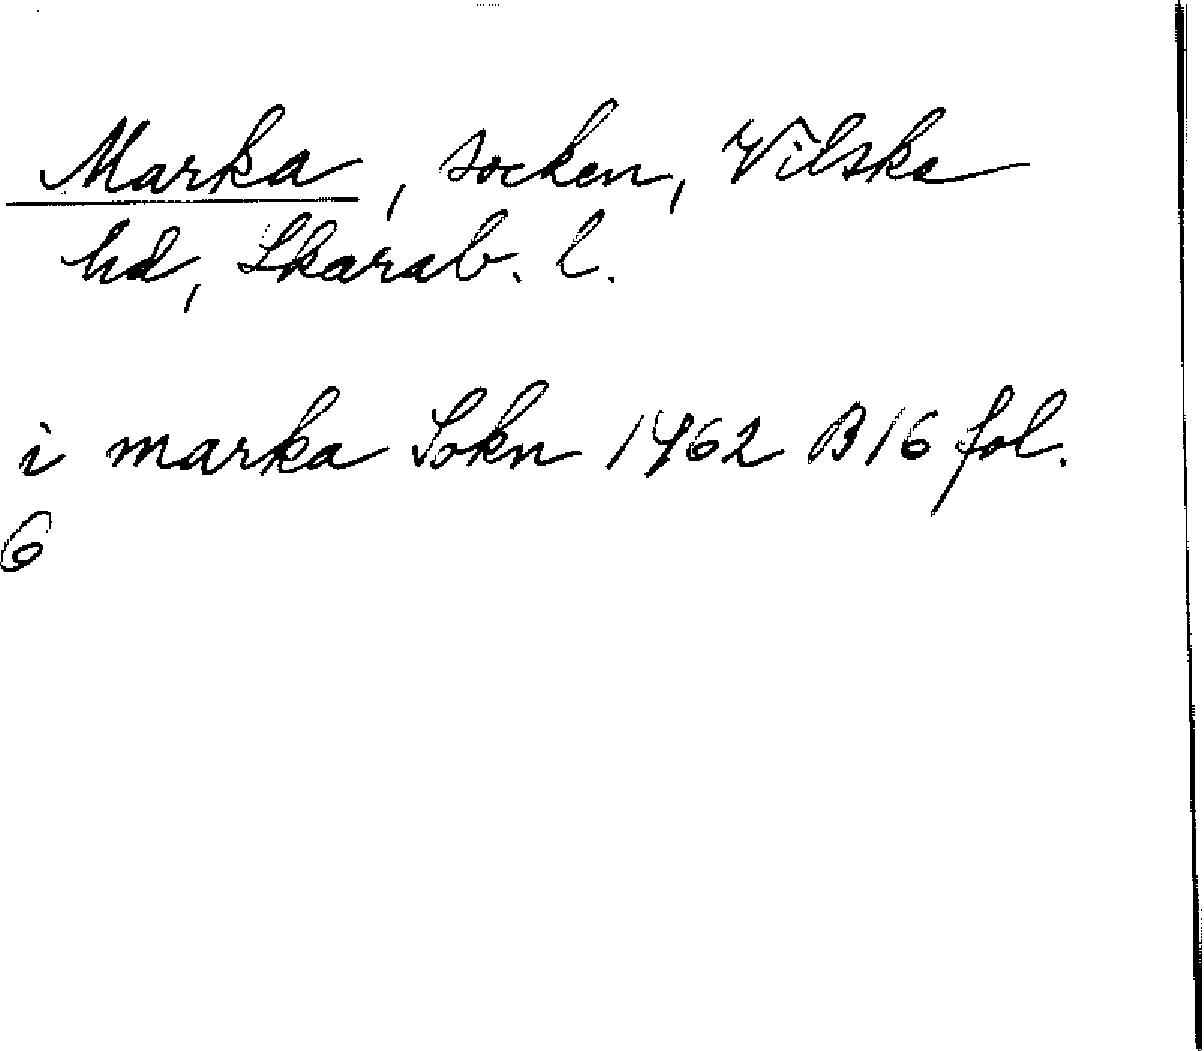 Marka, socken, Vilske
hd, Skarab. l.
i marka Sokn 1462 B16 fol.
6